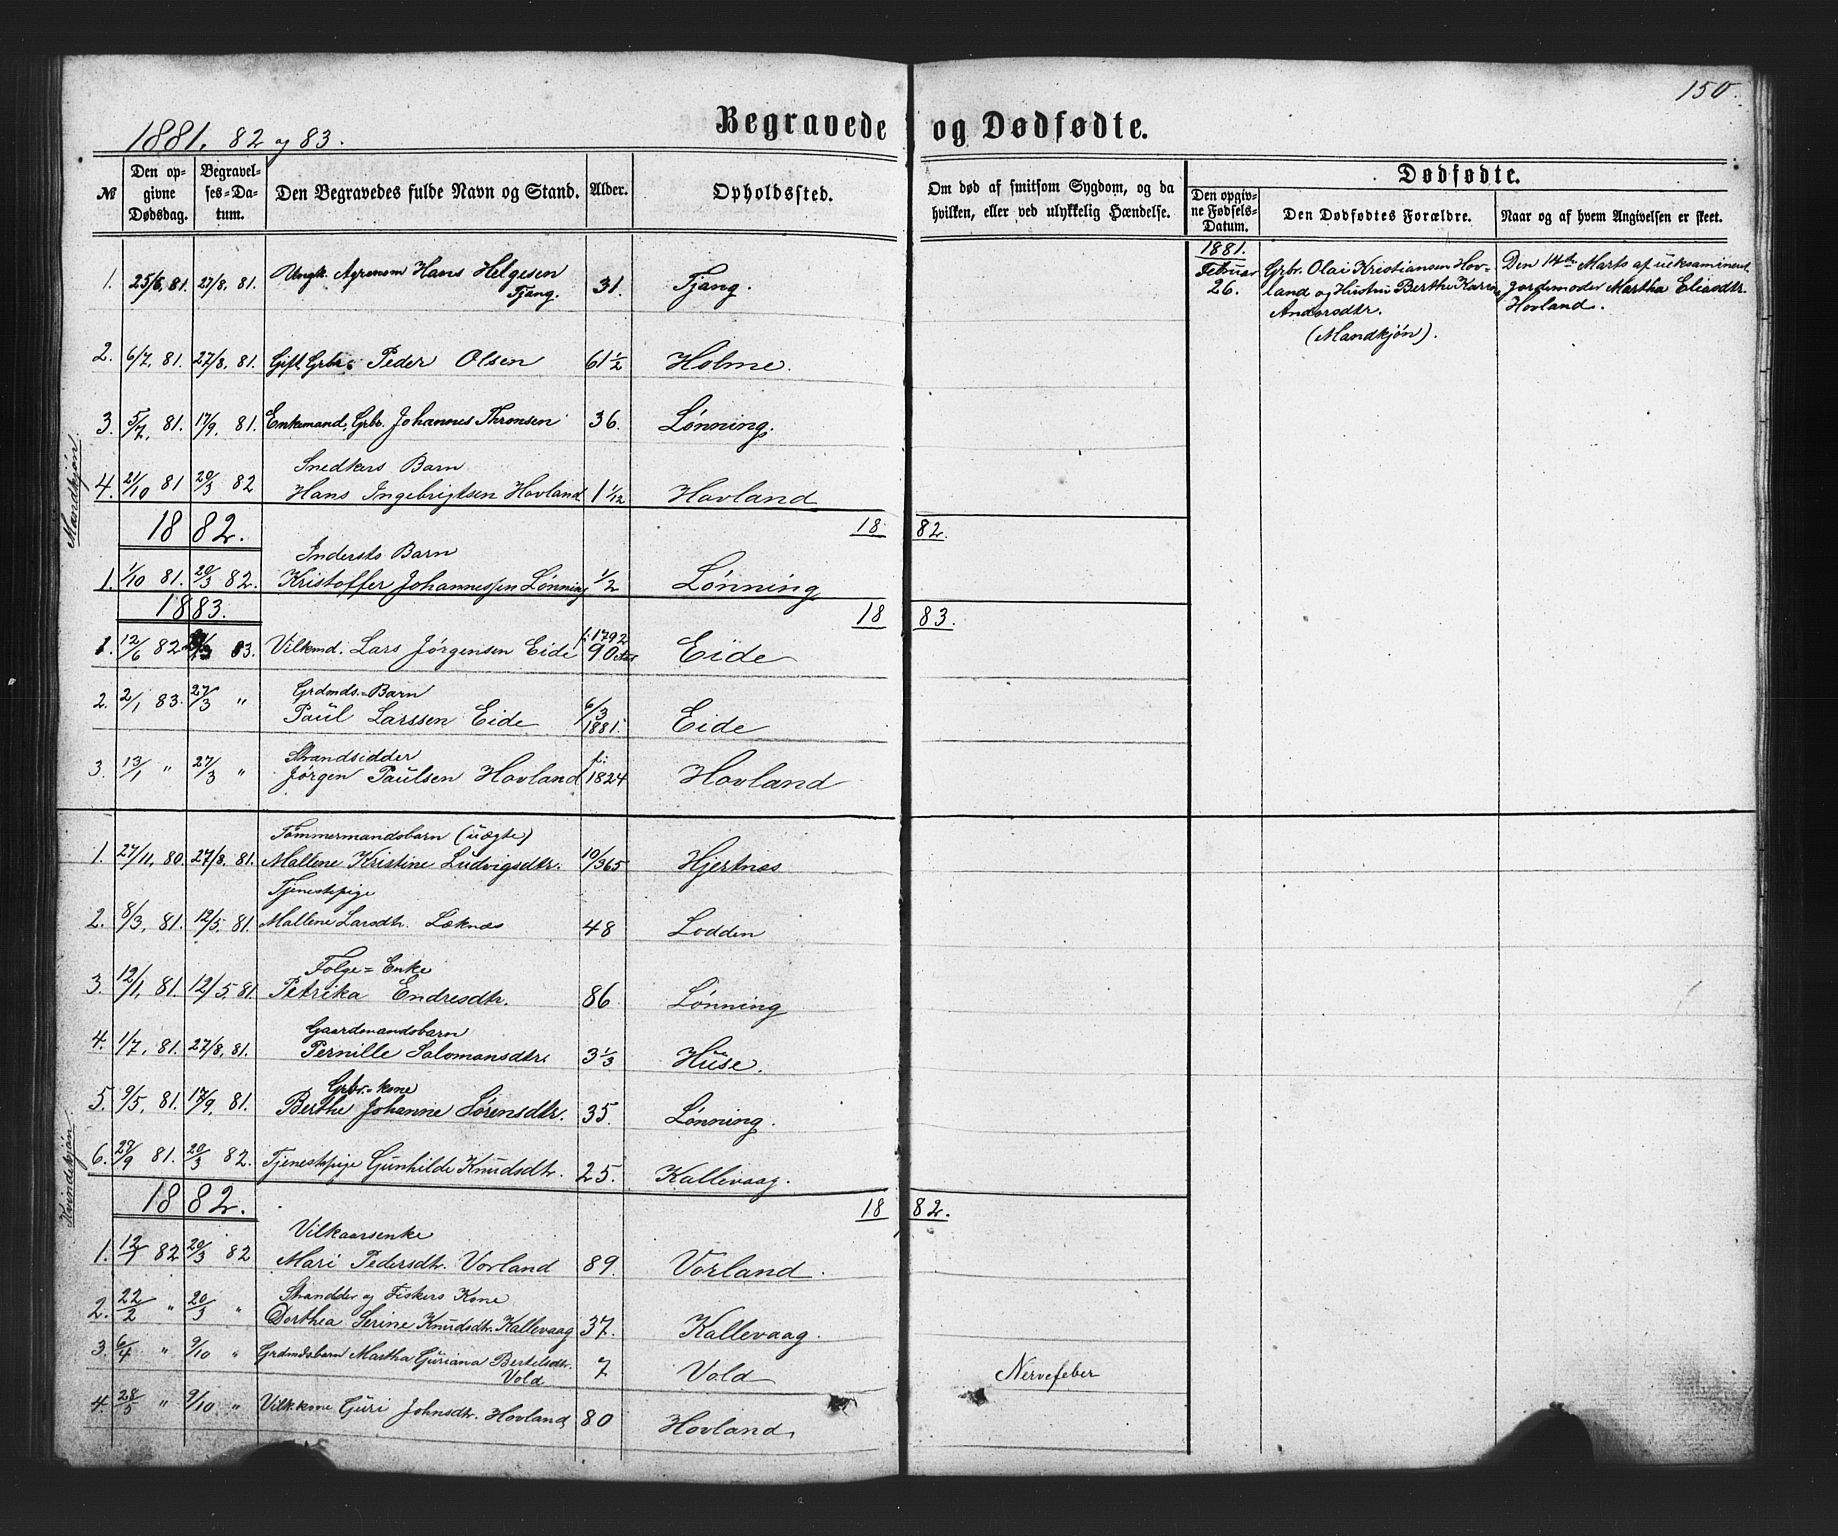 150.
1881. 82 og 83.
Begravede og Dødfødte.
№ Den opgivne Dødsdag. Begravelses-Datum. Den Begravedes fulde Navn og Stand. Alder. Opholdssted. Om død af smitsom Sygdom, og da hvilken, eller ved ulykkelig Hændelse. Dødfødte.
Den opgivne Fødsels-Datum. Den Dødfødtes Forældre. Naar og af hvem Angivelsen er skeet.
Mandkjøn.
1. 25/6, 81. 27/8, 81. Ungk. Agronom Hans Helgesen Tjang. 31. Tjang.
1881. Februar 26. Grbr. Olai Kristiansen Hovland og Hustru Berthe Karine Andersdtr. (Mandkjøn). Den 14de Marts af ueksamineret Jordemoder Martha Eliasdtr. Hovland.
2. 6/7, 81. 27/8, 81. Gift Grbr. Peder Olsen 61 1/2 Holme.
3. 5/7, 81. 17/9, 81. Enkemand, Grbr. Johannes Thronsen 36. Lønning.
Snedkers Barn
4. 21/10 81 20/3 82 Hans Ingebrigtsen Hovland 1 1/12 Hovland
1882. 18 82.
Indersts Barn
1. 1/10 81. 20/3 82. Kristoffer Johannessen Lønning 1/2 Lønning
1883. 18 83.
1. 12/6 82 83. Vilkmd. Lars Jørgensen Eide f. 1792 90 Eide
Grdmds.-Barn
2. 2/1 83. 27/3 " Paul Larssen Eide 6/3 1881. Eide
Strandsidder
3. 13/1 " 27/3 " Jørgen Paulsen Hovland f. 1824 Hovland
Kvindekjøn
Tømmermandsbarn (uægte)
1. 27/11, 80. 27/8, 81. Mallene Kristine Ludvigsdtr. 10/365 Hjertnæs
Tjenestpige
2. 8/3, 81. 12/5, 81. Mallene Larsdtr. Læknæs 48 Lodden
Folge-Enke
3. 12/1, 81. 12/5 81. Petrika Endresdtr. 86 Lønning
Gaardmandsbarn
4. 1/7, 81. 27/8, 81. Pernille Salomonsdtr. 3 1/3 Huse.
Grbr.-kone
5. 9/5, 81. 17/9, 81. Berthe Johanne Sørensdtr. 35. Lønning.
6. 27/9 81. 20/3 82. Tjenestpige Gunhilde Knudsdtr. 25. Kallevaag.
1882. 18 82.
Vilkaarsenke
1. 12/1 82 20/3 82 Mari Pedersdtr. Vorland 89. Vorland.
Strandder og Fiskers Kone
2. 22/2 " 20/3 " Dorthea Serine Knudsdtr. Kallevaag 37. Kallevaag.
3. 6/4 " 9/10 " Grdmdsbarn Martha Guriana Bertelsdtr. Vold 7 Vold Nervefeber
4. 28/5 " 9/10 " Vilk.kone Guri Johnsdtr. Hovland 80 Hovland.